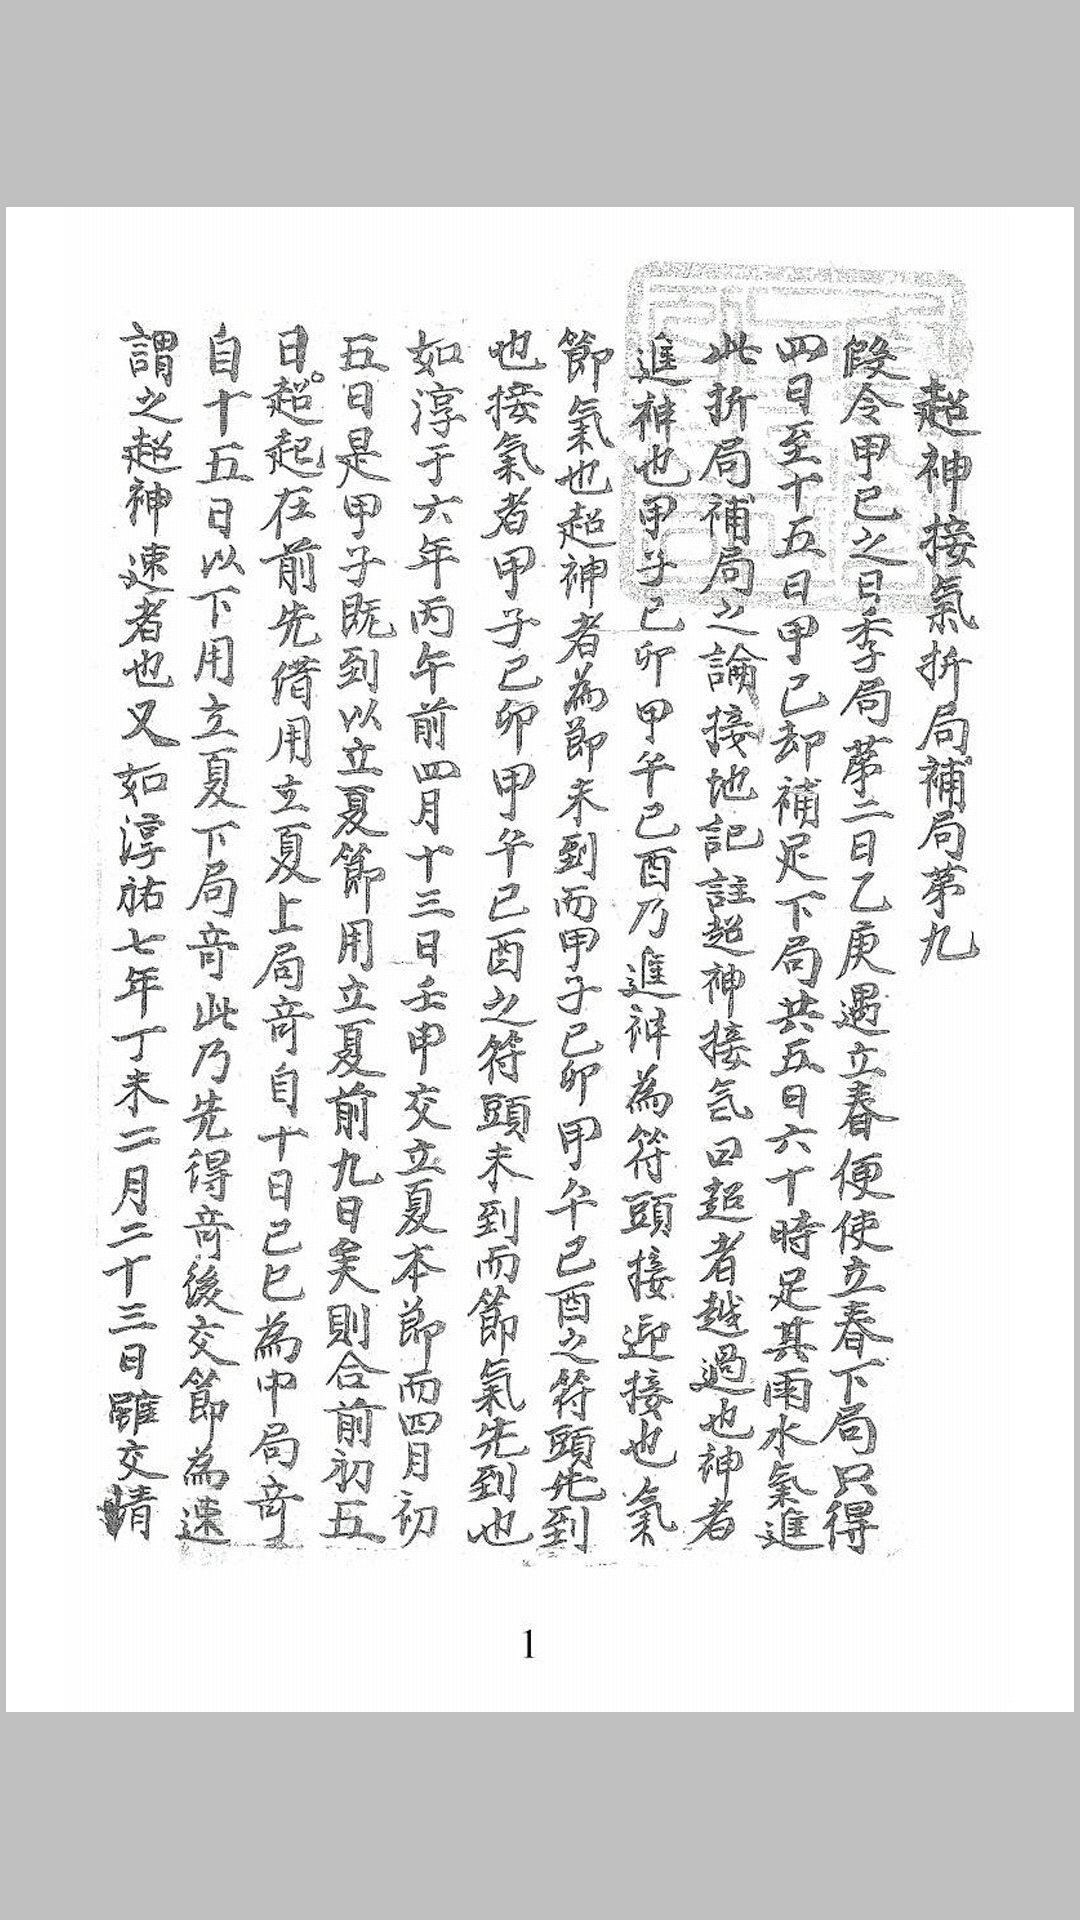 超神接氣折局補局苐九
假令甲己之日季局苐二日乙庚遇立春便使立春下局只得
四日至十五日甲己却補足下局共五日六十時足其雨水氣進
此折局補局之論接地記註超神接氣曰超者越過也神者
進神也甲子己卯甲午己酉乃進神為符頭接迎接也氣
節氣也超神者為節未到而甲子己卯甲午己酉之符頭先到
也接氣者甲子己卯甲午己酉之符頭未到而節氣先到也
如淳于六年丙午前四月十三日壬申交立夏本節而四月初
五日是甲子既到以立夏節用立夏前九日矣則合前初五
日超起在前先借用立夏上局竒自十日己巳為中局竒
自十五日以下用立夏下局竒此乃先得竒後交節為速
謂之超神速者也又如淳祐七年丁未二月二十三日雖交清
1